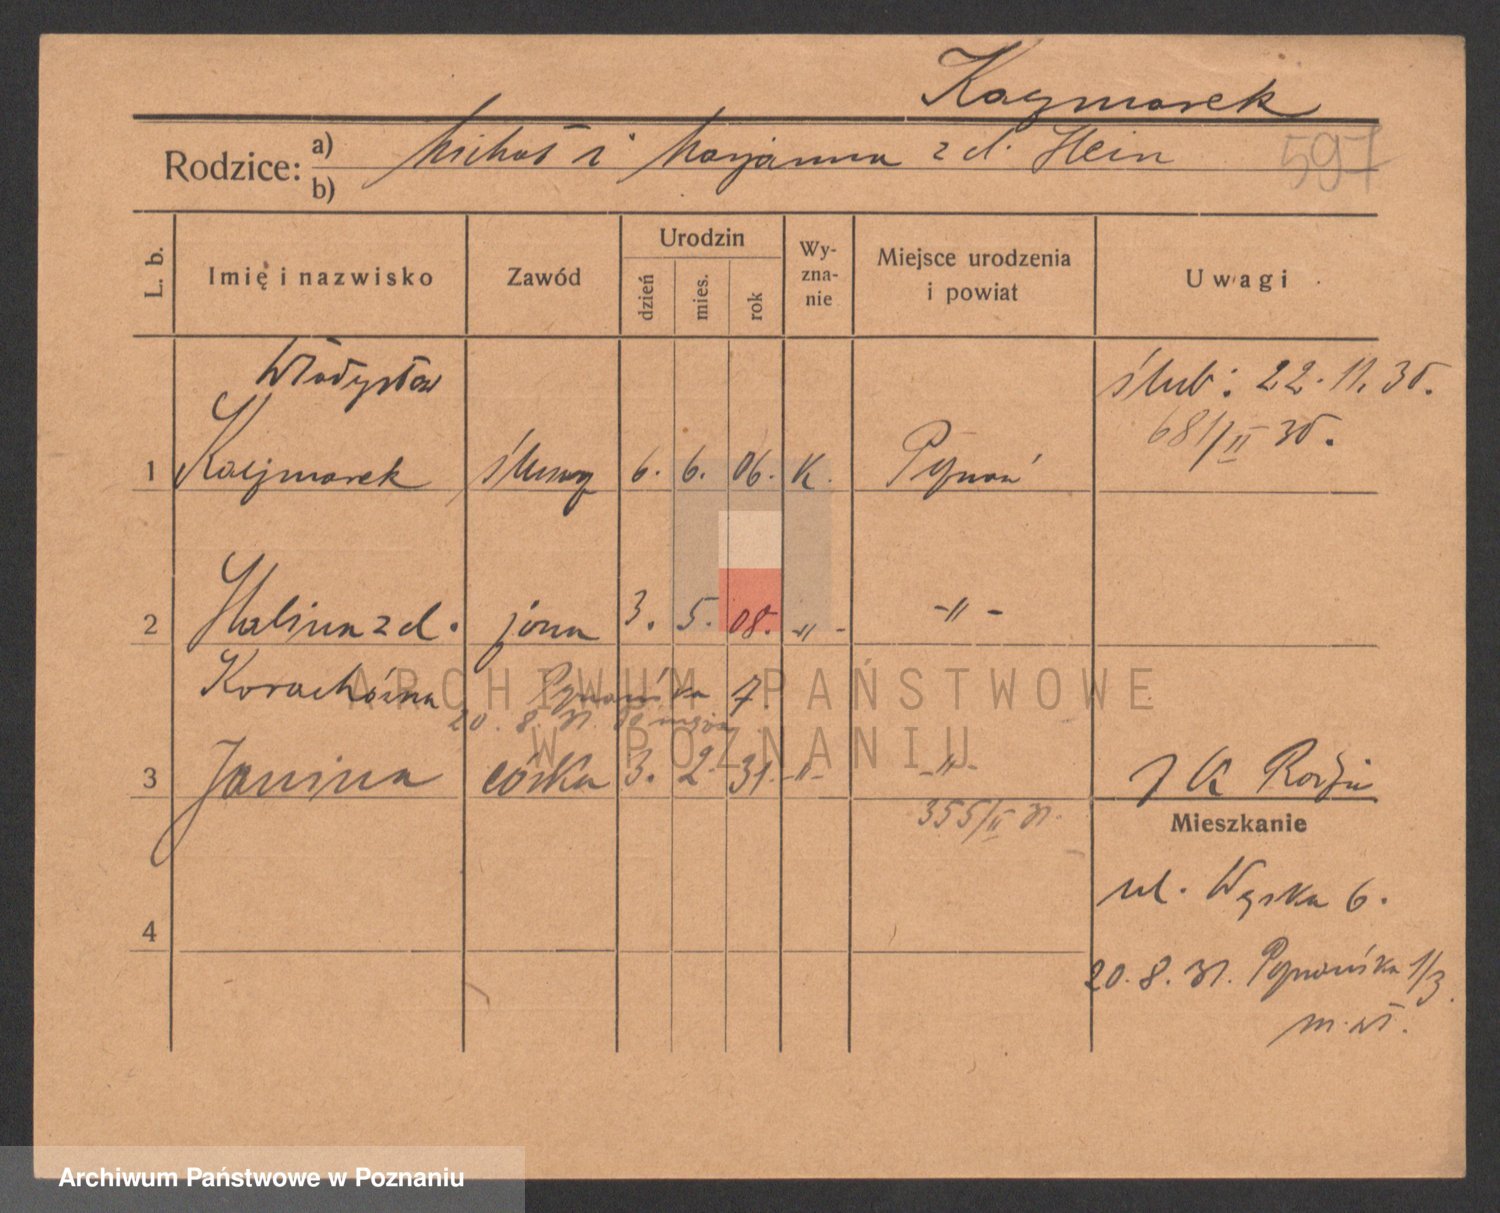 Kaczmarek
Rodzice: a) Michał i Marjanna z d. Hein
b)
597
L. b. Imię i nazwisko Zawód Urodzin dzień mies. rok Wy-zna-nie Miejsce urodzenia i powiat Uwagi
Władysław ślub: 22. 11. 30.
681/II 30.
1 Kaczmarek ślusarz 6. 6. 06. K. Poznań
2 Halina z d. żona 3. 5. 08. -"- -"-
Korachówna Poznańska 7.
20. 8. 31. do męża
3 Janina córka 3. 2. 31. -"- -"-
355/II 31.
Mieszkanie
ul. Wąska 6.
4
20. 8. 31. Poznańska 1/3
ARCHIWUM PAŃSTWOWE
W POZNANIU
Archiwum Państwowe w Poznaniu